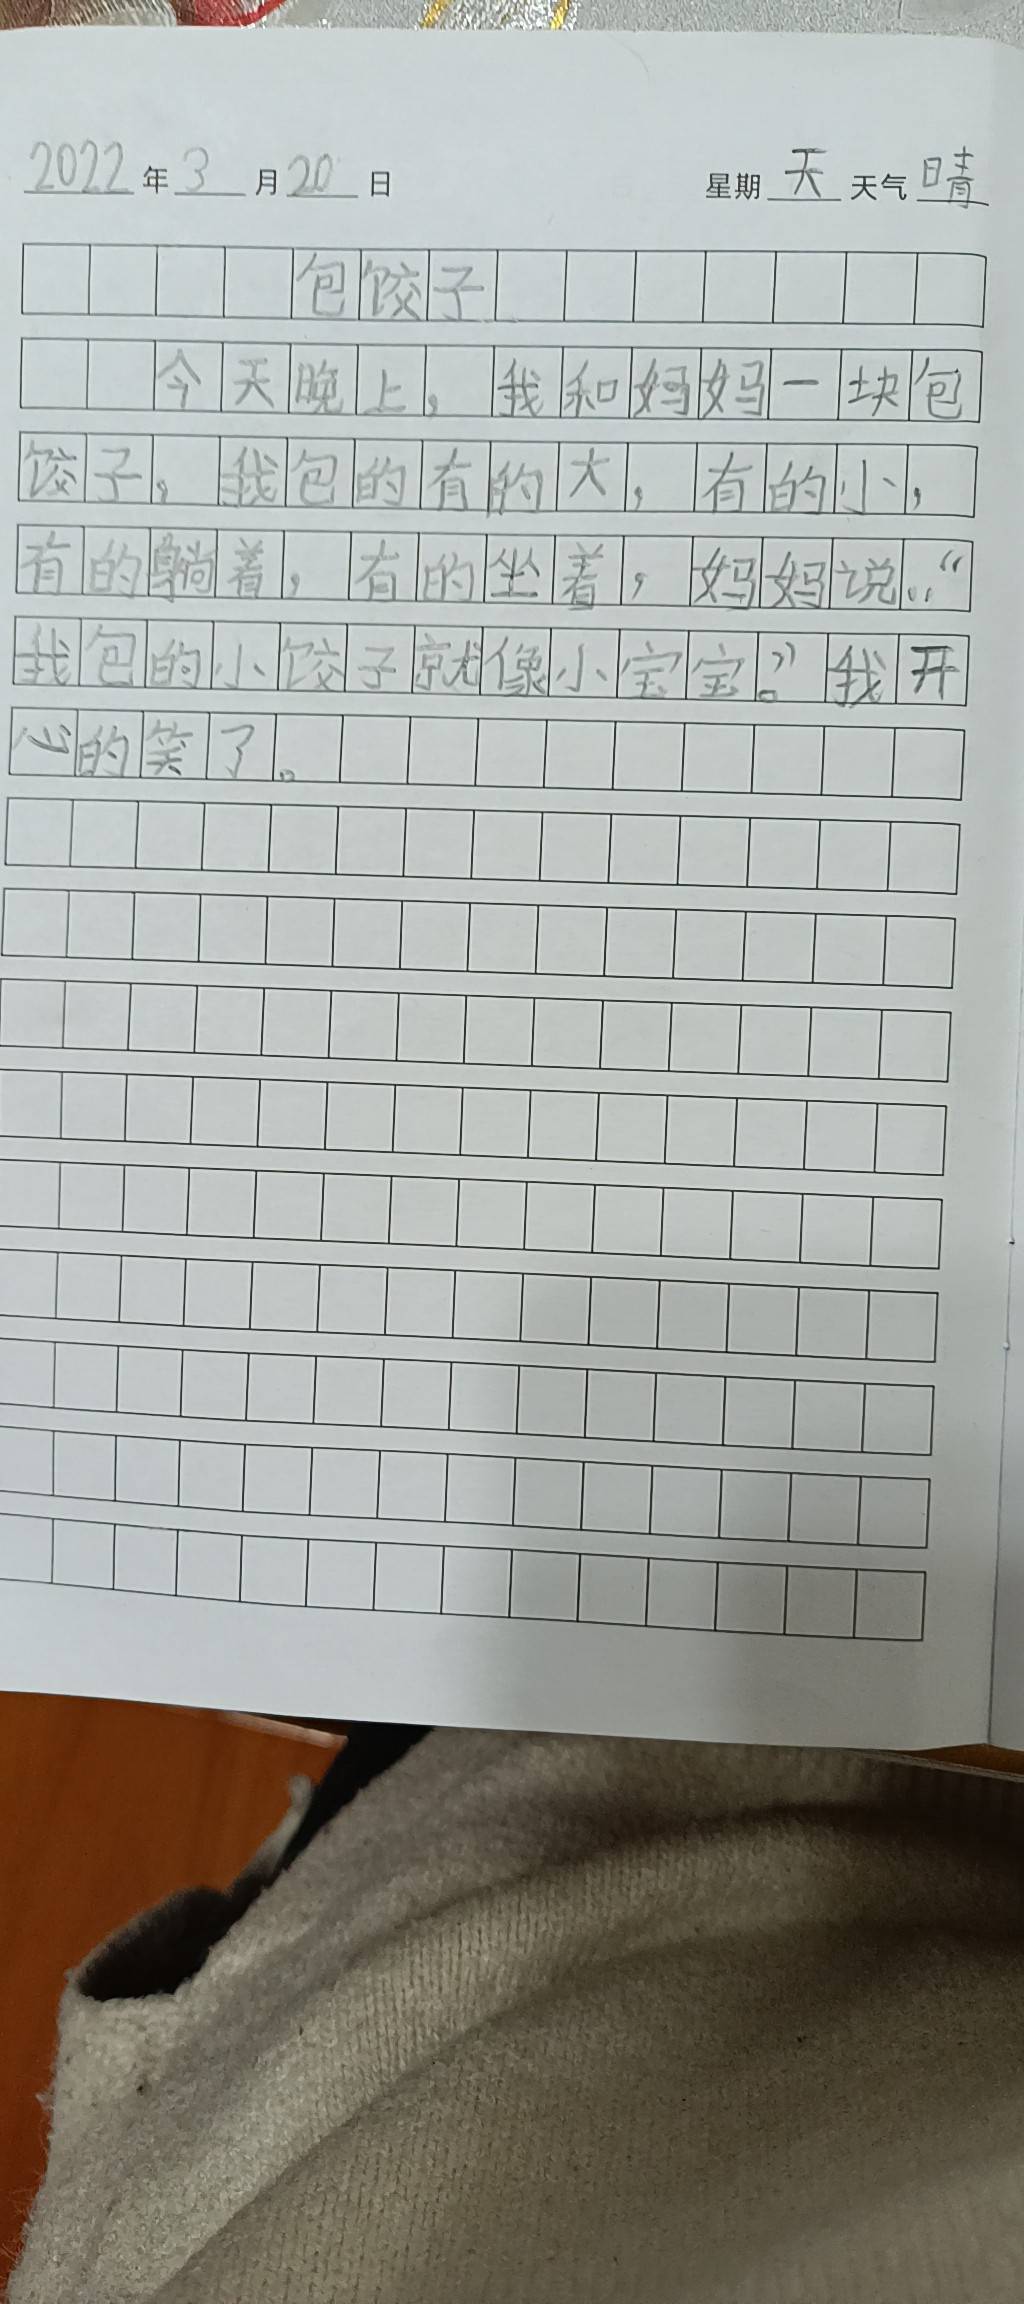 2022年3月20日 星期天 天气晴
包饺子
今天晚上，我和妈妈一块包
饺子，我包的有的大，有的小，
有的躺着，有的坐着，妈妈说：“
我包的小饺子就像小宝宝。”我开
心的笑了。